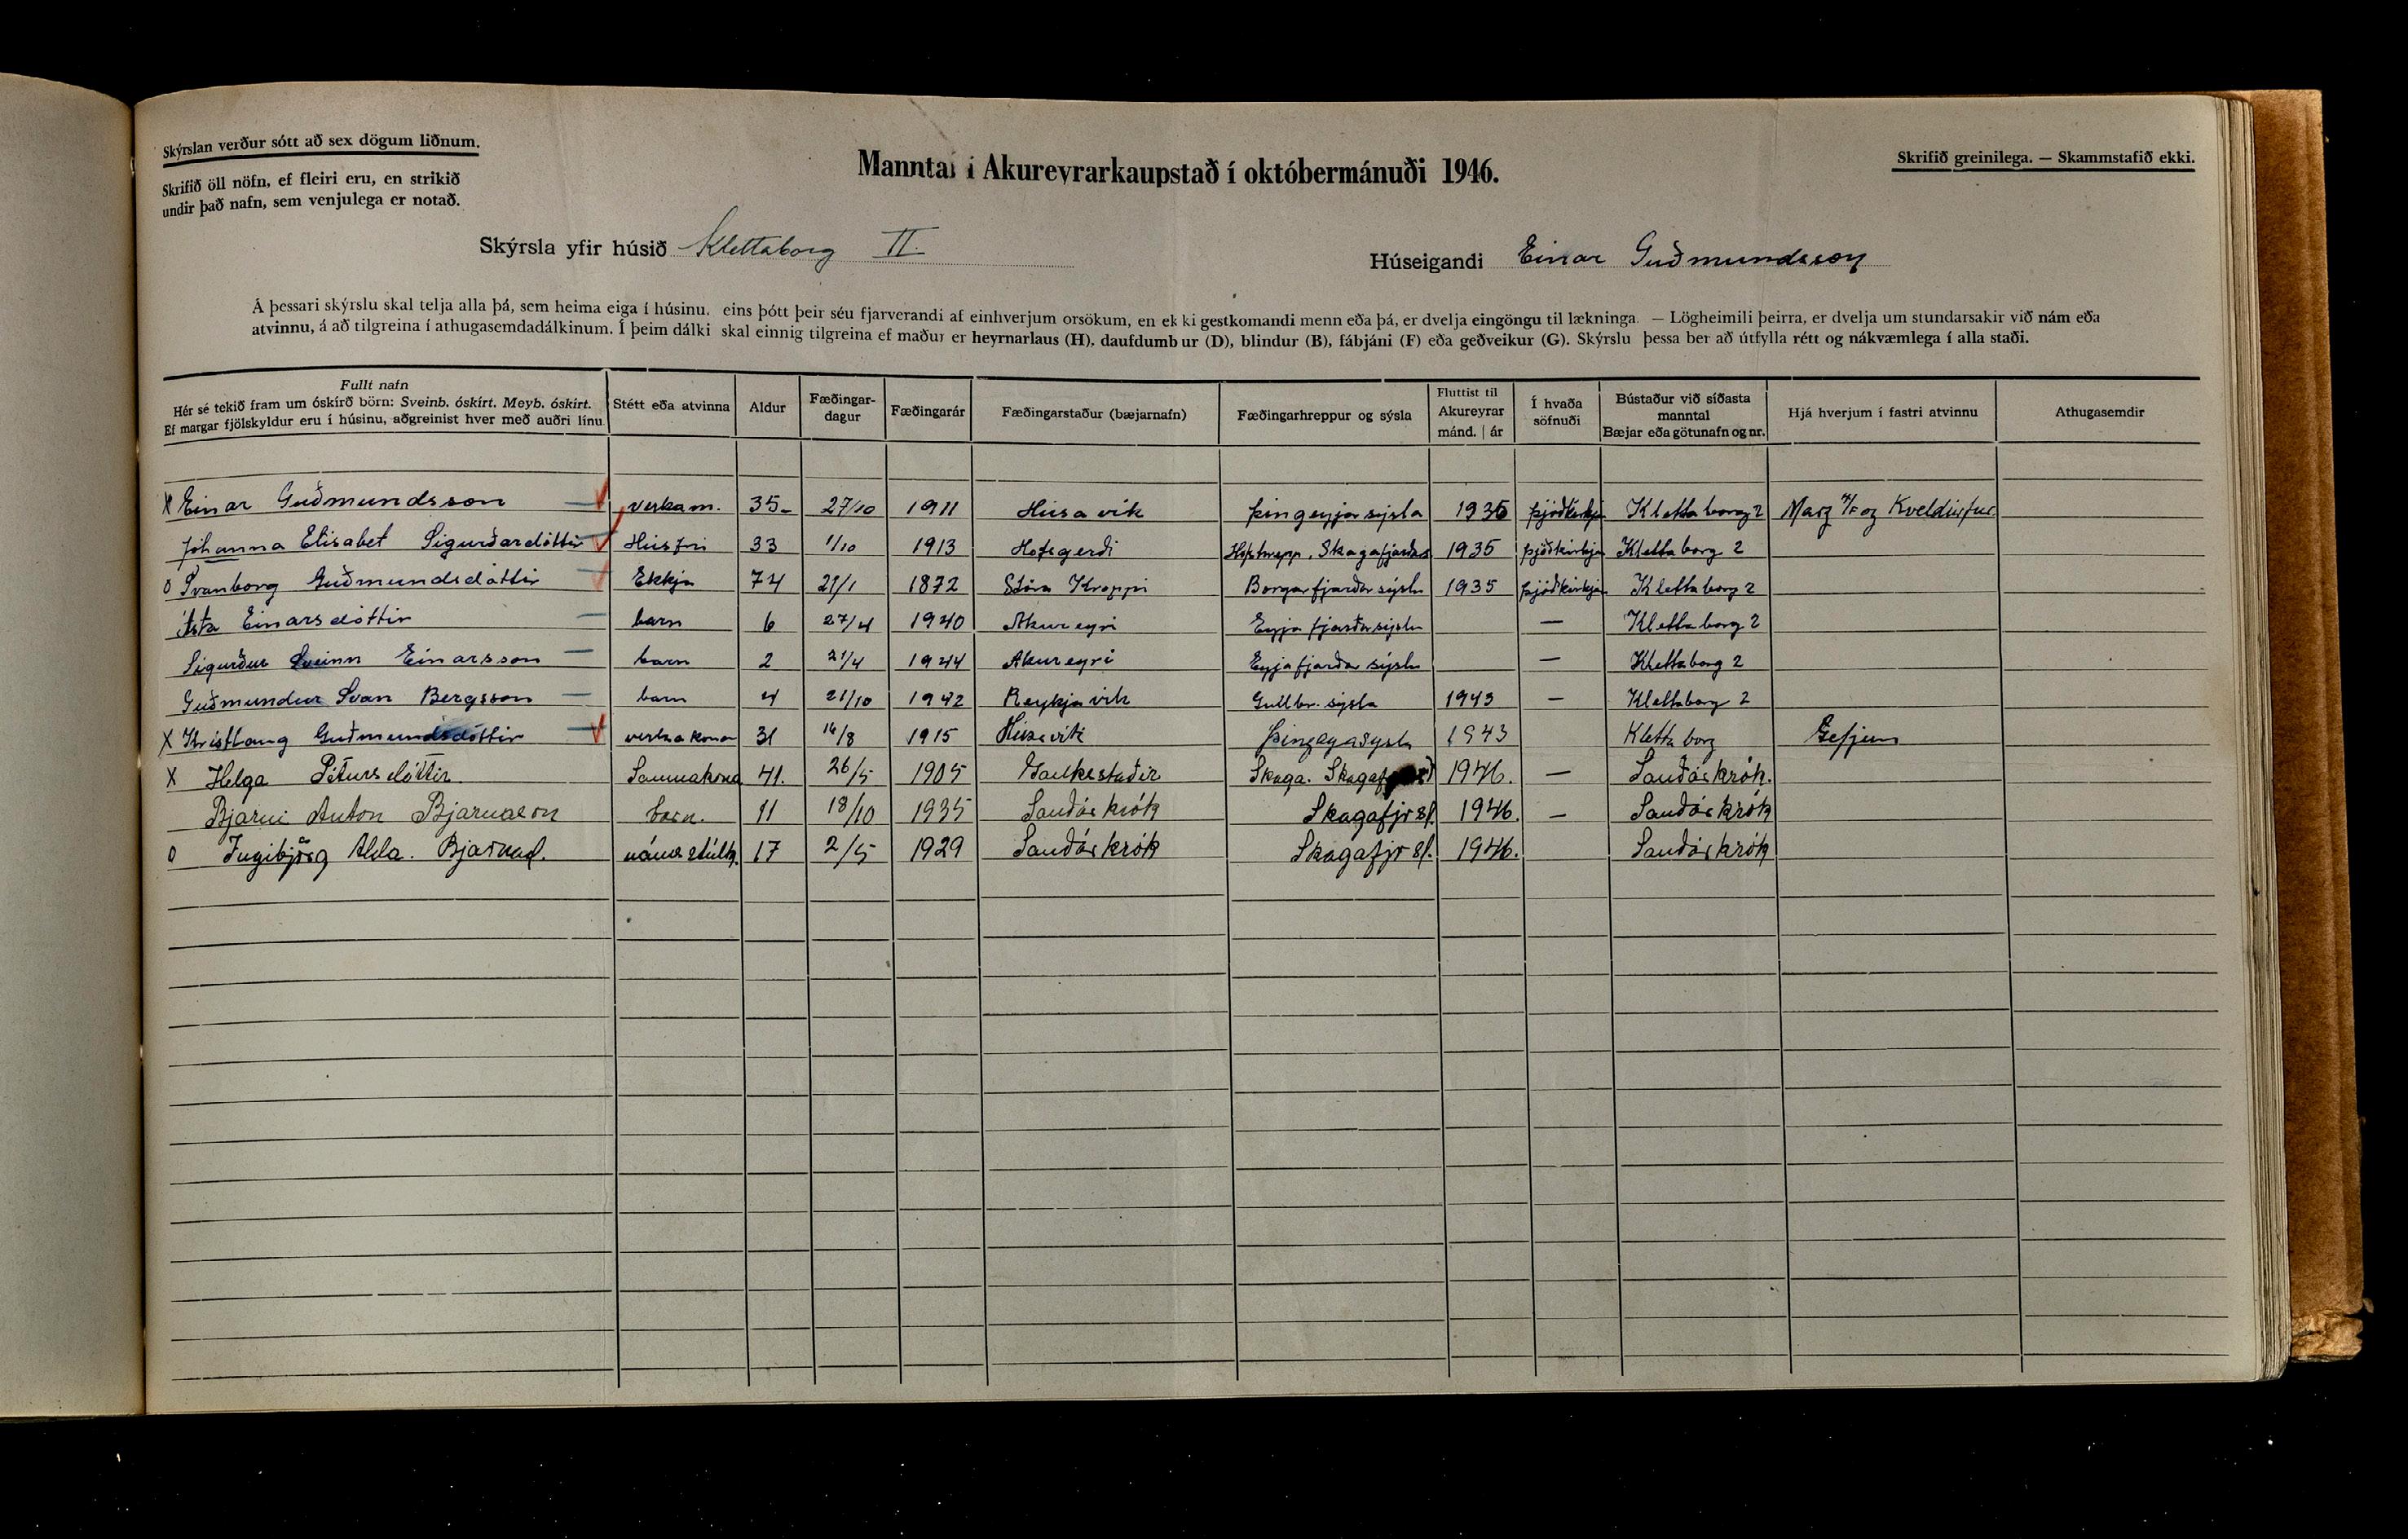 Skýrslan verður sótt að sex dögum liðnum.
Skrifið öll nöfn, ef fleiri eru, en strikið
undir það nafn, sem venjulega er notað.
Manntal í Akureyrarkaupstað í októbermánuði 1946.
Skrifið greinilega. — Skammstafið ekki.
Skýrsla yfir húsið Klettaborg II.
Húseigandi Einar Guðmundsson
Á þessari skýrslu skal telja alla þá, sem heima eiga í húsinu, eins þótt þeir séu fjarverandi af einhverjum orsökum, en ekki gestkomandi menn eða þá, er dvelja eingöngu til lækninga. — Lögheimili þeirra, er dvelja um stundarsakir við nám eða
atvinnu, á að tilgreina í athugasemdadálkinum. Í þeim dálki skal einnig tilgreina ef maður er heyrnarlaus (H), daufdumbur (D), blindur (B), fábjáni (F) eða geðveikur (G). Skýrslu þessa ber að útfylla rétt og nákvæmlega í alla staði.
Fullt nafn
Hér sé tekið fram um óskírð börn: Sveinb. óskírt. Meyb. óskírt.
Ef margar fjölskyldur eru í húsinu, aðgreinist hver með auðri línu.
Stétt eða atvinna
Aldur
Fæðingar-
dagur
Fæðingarár
Fæðingarstaður (bæjarnafn)
Fæðingarhreppur og sýsla
Fluttist til
Akureyrar
mánd. | ár
Í hvaða
söfnuði
Bústaður við síðasta
manntal
Bæjar eða götunafn og nr.
Hjá hverjum í fastri atvinnu
Athugasemdir
X Einar Guðmundsson — verkam. 35- 27/10 1911 Húsavík Þingeyjarsýsla 1935 Þjóðkirkja Klettaborg 2 og Kveldúlfur
Jóhanna Elisabet Sigurðardóttir Húsfrú 33 1/10 1913 Hofsgerði Hofshrepp. Skagafjarðar 1935 Þjóðkirkja Klettaborg 2
o Svanborg Guðmundsdóttir — Ekkja 74 21/1 1872 Stóra Kroppi Borgarfjarðarsýslu 1935 Þjóðkirkja Klettaborg 2
Ásta Einarsdóttir — barn 6 27/4 1940 Akureyri Eyjafjarðarsýslu — Klettaborg 2
Sigurður Sveinn Einarsson — barn 2 21/4 1944 Akureyri Eyjafjarðarsýslu — Klettaborg 2
Guðmundur Svan Bergsson — barn 4 21/10 1942 Reykjavík Gullbr. sýsla 1943 — Klettaborg 2
X Kristlaug Guðmundsdóttir — verkakona 31 16/8 1915 Húsavík 1943 Klettaborg Gefjun
X Helga Pétursdóttir Saumakona 41. 26/5 1905 Gaukstaðir Skaga. 1946. — Sauðárkrók.
Bjarni Anton Bjarnason barn. 11 18/10 1935 Sauðárkrók Skagafjrsl. 1946. — Sauðárkrók
o Ingibjörg Alda. Bjarnad. námsstúlk. 17 2/5 1929 Sauðárkrók Skagafjrsl. 1946. Sauðárkrók